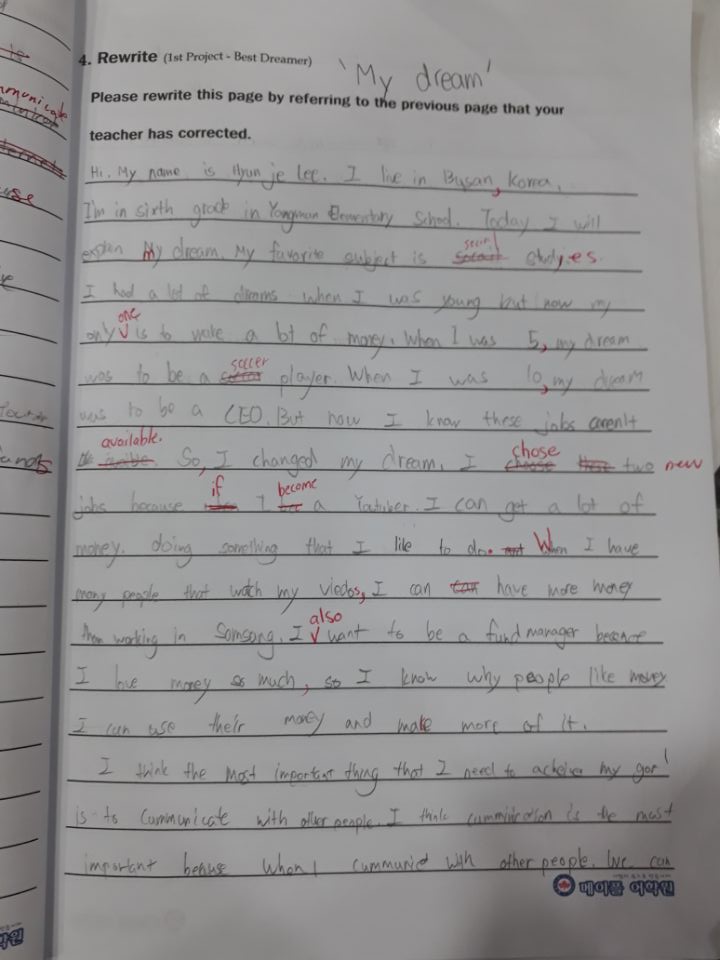 4. Rewrite (1st Project - Best Dreamer) 'My dream'
Please rewrite this page by referring to the previous page that your
teacher has corrected.
Hi. My name is Hyun je Lee. I live in Busan, Korea.
I'm in sixth grade in Yongmun Elementary School. Today I will
explan My dream. My favorite subject is social studyes.
I had a lot of dreams when I was young but now my
one
only is to make a lot of money. When I was 5, my dream
soccer
was to be a player. When I was 10, my dream
was to be a CEO. But now I know these jobs arent
available.
So, I changed my dream. I chose two new
if become
jobs because I a Youtuber. I can get a lot of
money. doing something that I like to do. When I have
many people that watch my viedos, I can have more money
also
than working in Somsang. I want to be a fund manager because
I love money so much, so I know why people like money
I can use their money and make more of it.
I think the most important thing that I need to acheive my goal
is to Cummunicate with other people. I think cumminication is the most
important because When I cummunicd with other people. We can
메이플 어학원
mmunicate
use